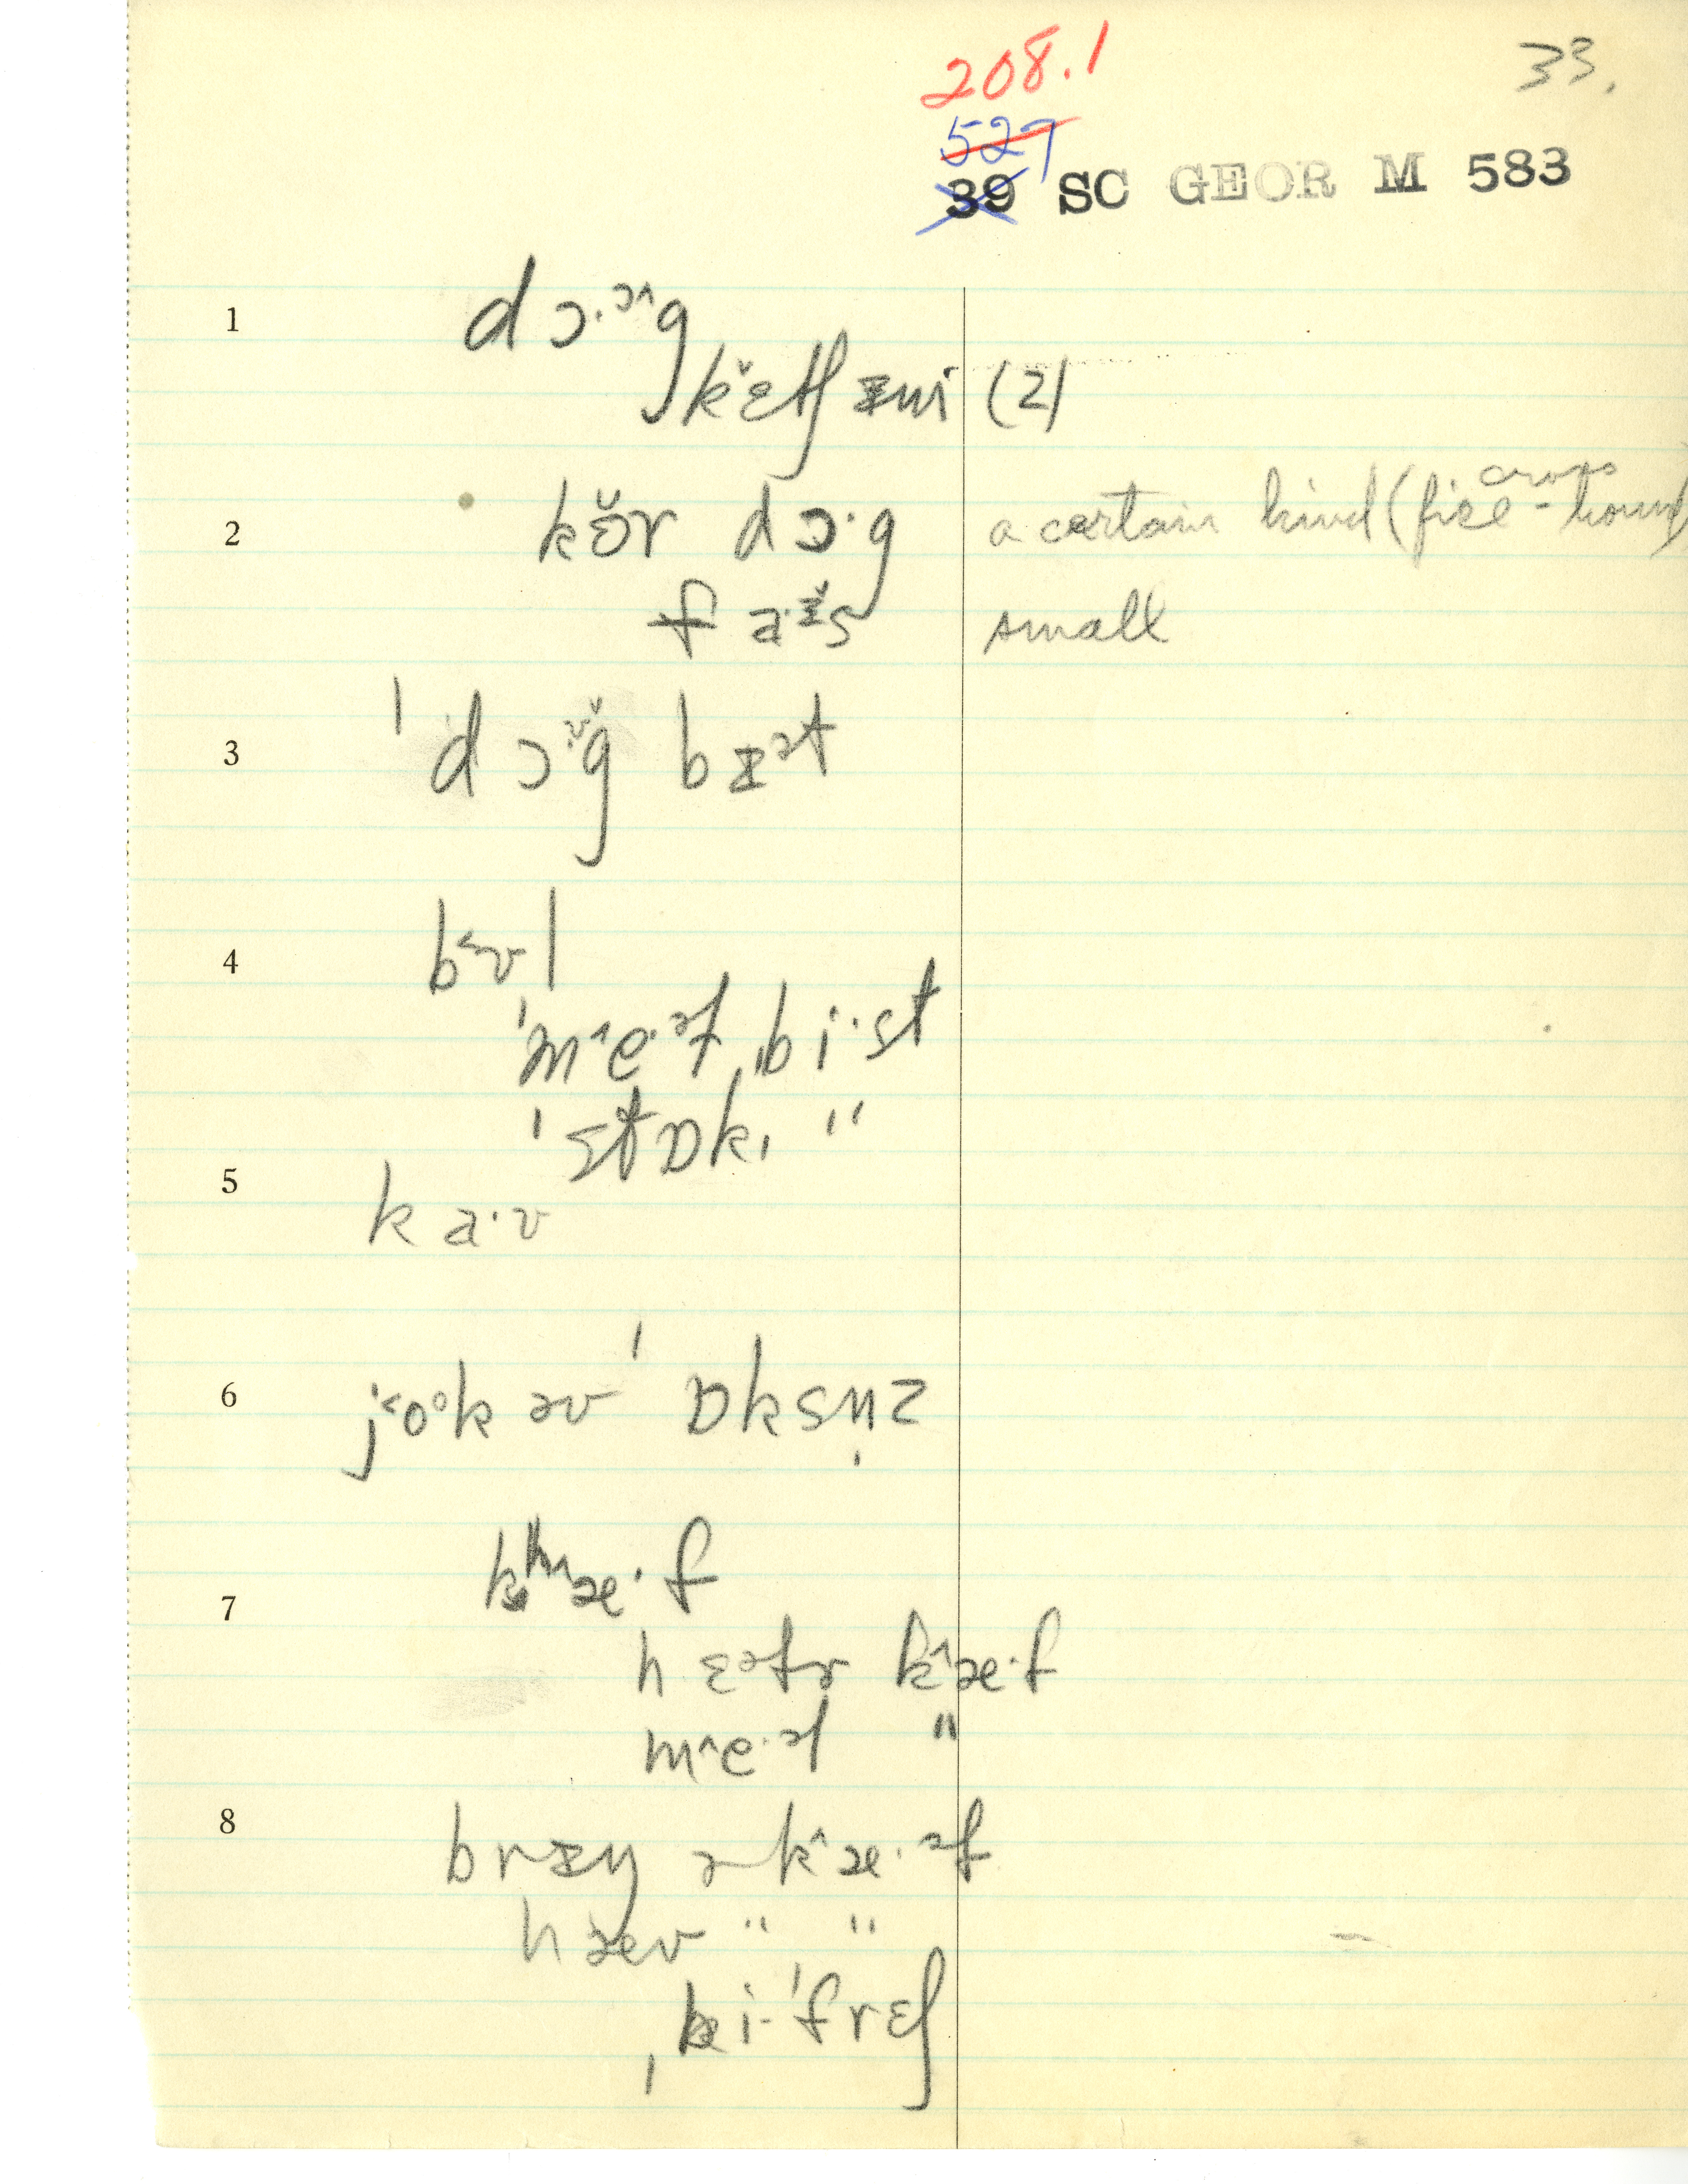 208.1
33.
527
39 SC GEOR M 583
1 dɔ·ɔ^g
kɛ̌tʃ ᵻmi (2)
2 kɚ̆r dɔ·g a certain kind (fice - hound) cross
f a·ᵻ̆s small
3 ˈdɔg bᵻət
4 b˂ʊl
ˈm^e·ət ˌbi·st
ˈstɒkˌ "
5 ka·ʊ
6 j˂oᵒk əv ˈɒksn̩z
7 kʰ^æ·f
hɛəfr k^æ·f
m^e·əl "
8 brᵻŋ ə k^æ·əf
hæv " "
ˌki-ˈfrɛʃ